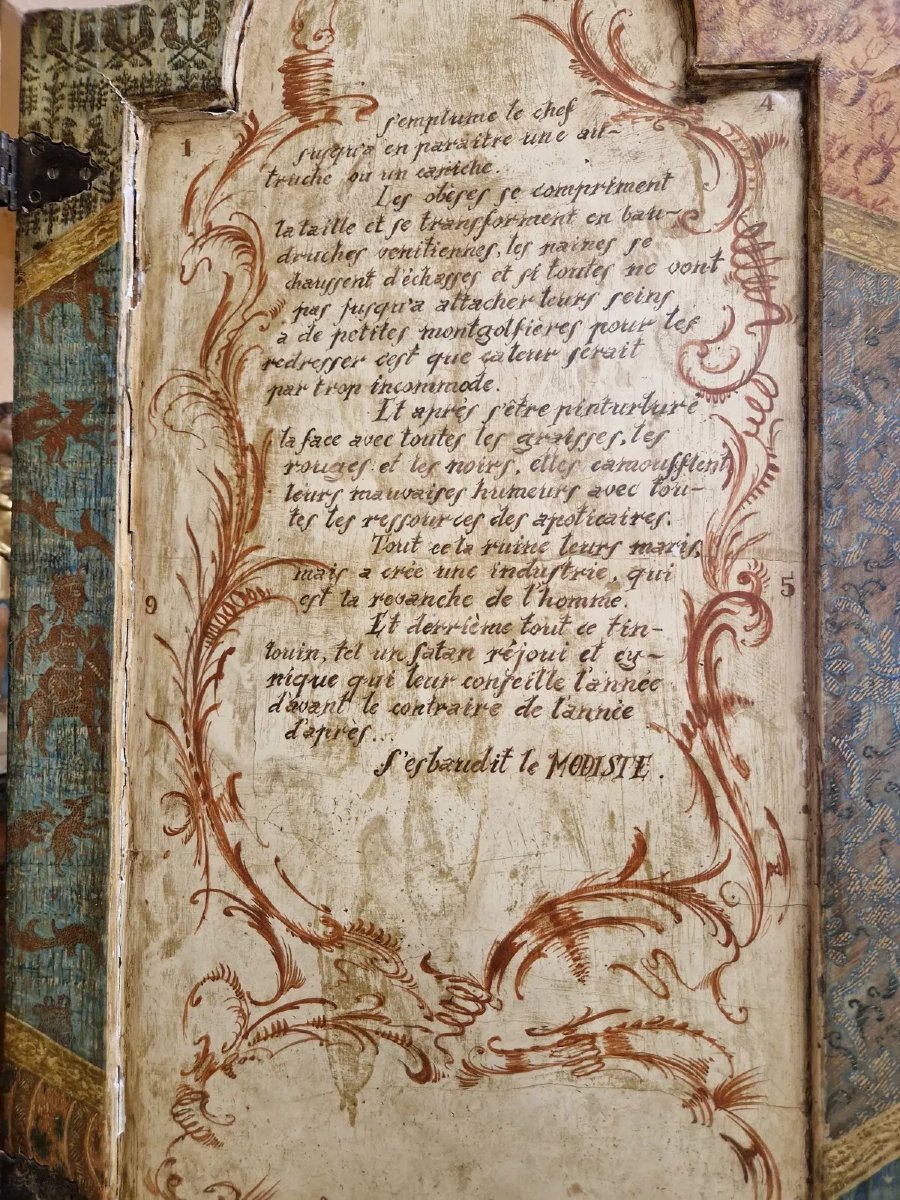 1
4
s'emplume le chef
jusqu'a en paraitre une au-
truche ou un caniche.
Les obèses se compriment
la taille et se transforment en bau-
druches venitiennes, les naines se
chaussent d'échasses et si toutes ne vont
pas jusqu'a attacher leurs seins
a de petites montgolfières pour les
redresser c'est que ça leur serait
par trop incommode.
Et après s'être pinturluré
la face avec toutes les graisses, les
rouges et les noirs, elles camoufflent
leurs mauvaises humeurs avec tou-
tes les ressources des apoticaires.
Tout cela ruine leurs maris,
mais a crée une industrie, qui
est la revanche de l'homme.
9
5
Et derrième tout ce tin-
touin, tel un satan réjoui et cy-
nique qui leur conseille l'année
d'avant le contraire de l'année
d'après...
S'esbaudit le MODISTE.